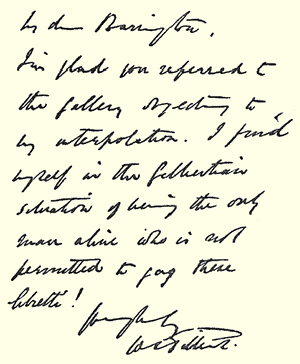 My dear Barrington,
I'm glad you referred to
the gallery objecting to
my interpolation. I find
myself in the Gilbertian
situation of being the only
man alive who is not
permitted to gag these
libretti!
Yours truly
WS Gilbert.